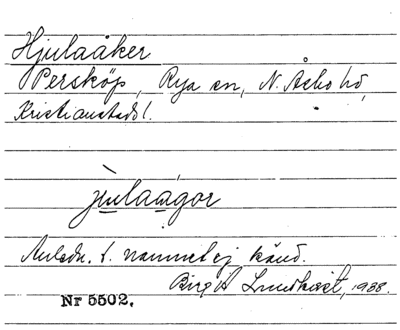 Hjulaåker
Persköp, Rya sn, N. Åsbo hd,
Kristianstads l.
jùlaágor
Anledn. t. namnet ej känd.
Birgit Lundkvist, 1938.
Nr 5502.